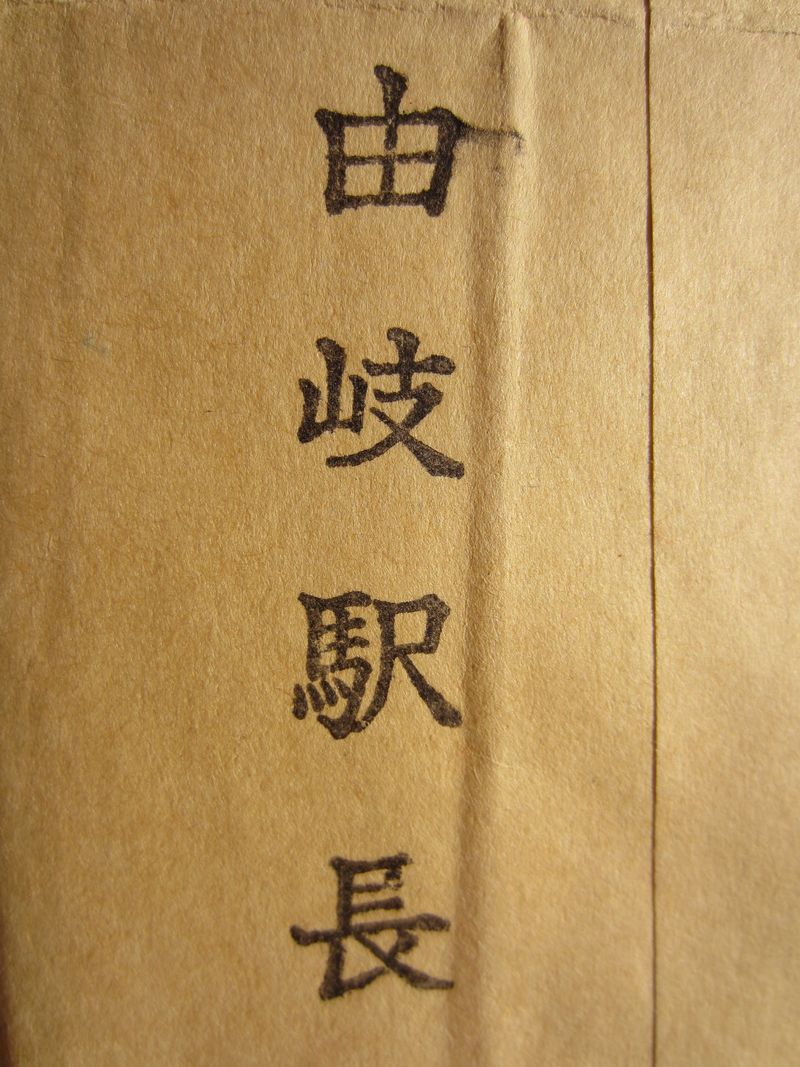 由岐駅長